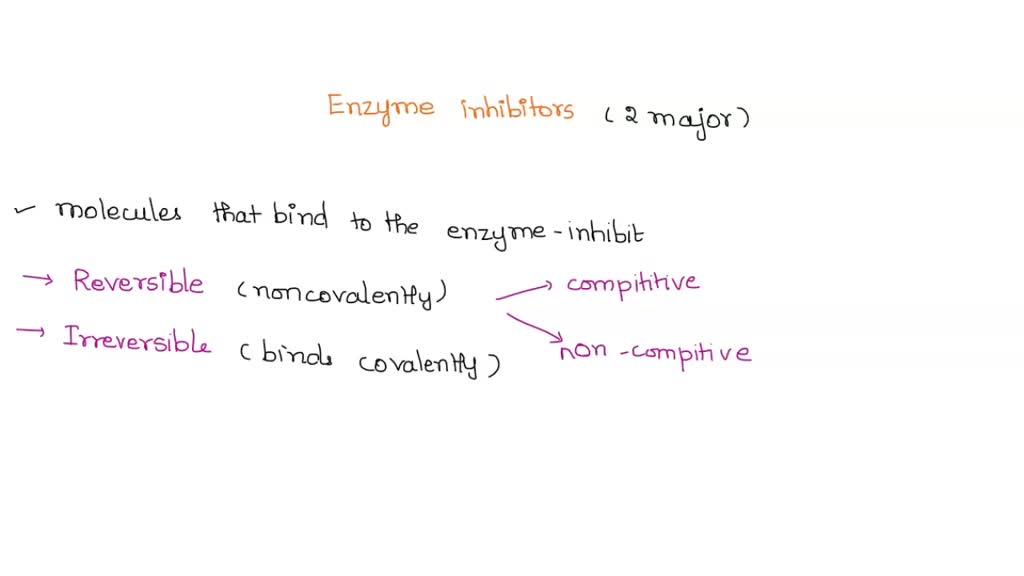 Enzyme inhibitors (2 major)
✓ molecules that bind to the enzyme-inhibit
→ Reversible (noncovalently) → compititive
→ Irreversible (binds covalently) → non-compitive